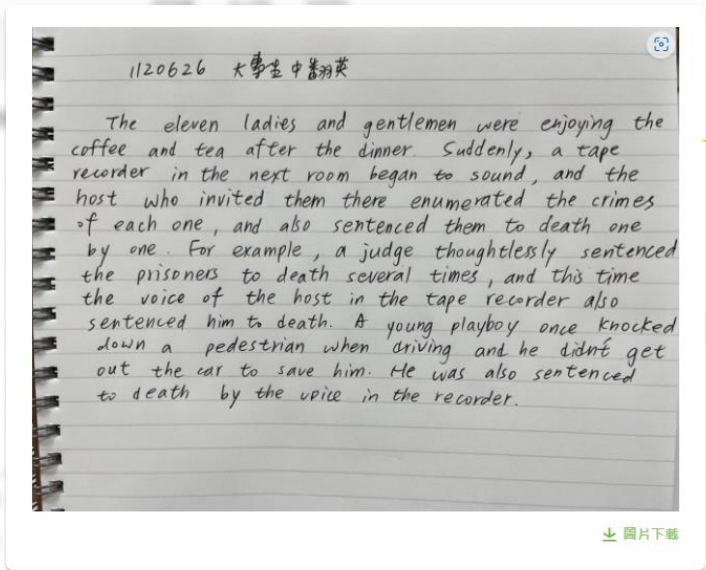 1120626 大學生中翻英
The eleven ladies and gentlemen were enjoying the
coffee and tea after the dinner. Suddenly, a tape
recorder in the next room began to sound, and the
host who invited them there enumerated the crimes
of each one, and also sentenced them to death one
by one. For example, a judge thoughtlessly sentenced
the prisoners to death several times, and this time
the voice of the host in the tape recorder also
sentenced him to death. A young playboy once knocked
down a pedestrian when driving and he didn't get
out the car to save him. He was also sentenced
to death by the voice in the recorder.
圖片下載